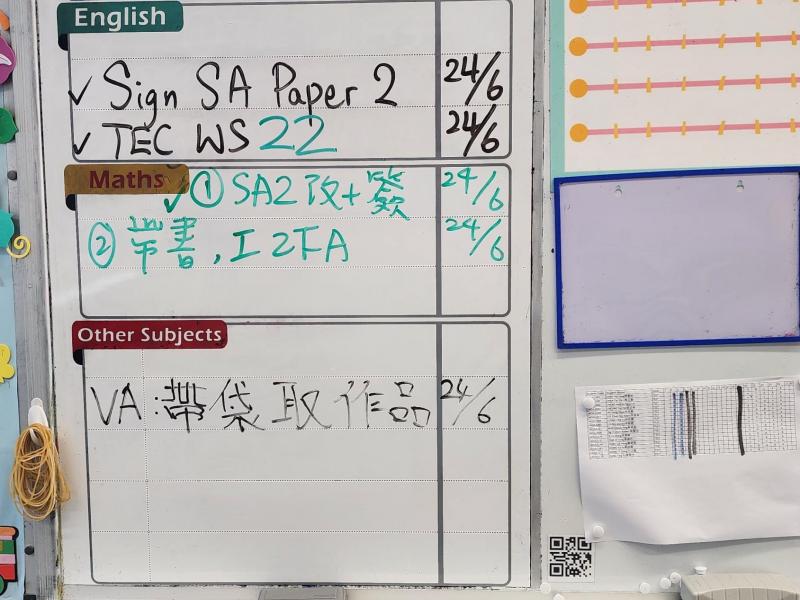 English
✓ Sign SA Paper 2 24/6
✓ TEC WS 22 24/6
Maths
✓ ① SA2 改+簽 24/6
② 帶書, 工2下A 24/6
Other Subjects
VA:帶袋取作品 24/6